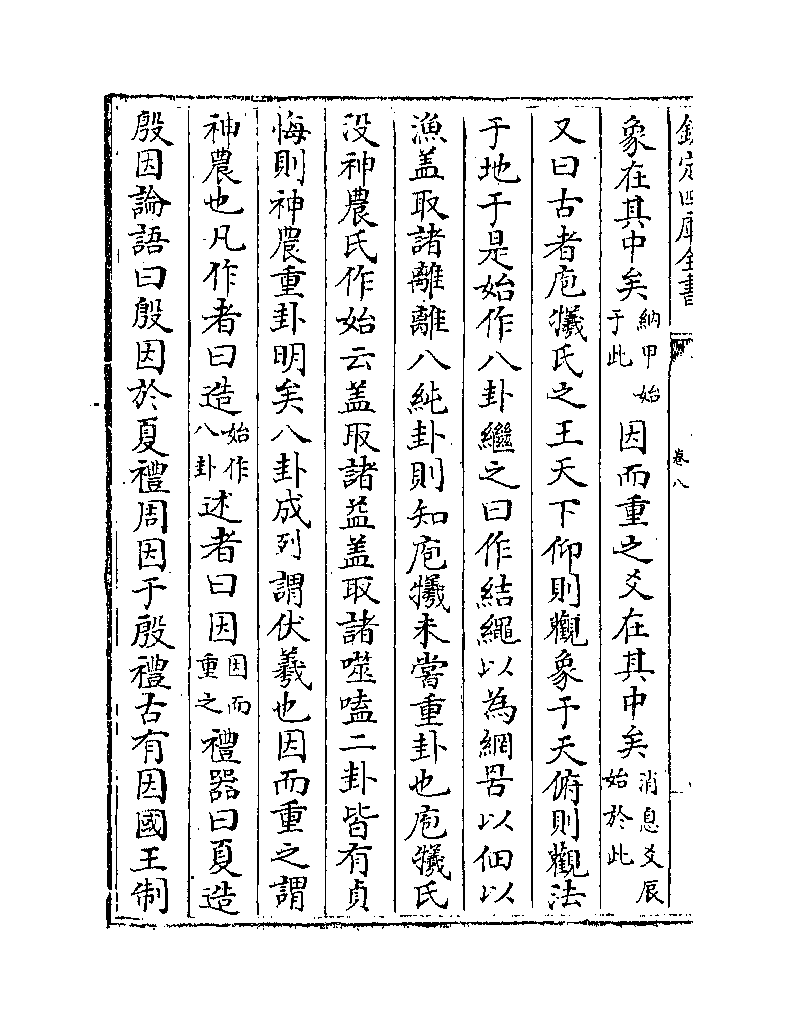 欽定四庫全書
卷八
象在其中矣納甲始于此因而重之爻在其中矣消息爻辰始於此
又曰古者庖犧氏之王天下仰則觀象于天俯則觀法
于地于是始作八卦繼之曰作結繩以為網罟以佃以
漁盖取諸離離八純卦則知庖犧未嘗重卦也庖犧氏
没神農氏作始云盖取諸益盖取諸噬嗑二卦皆有貞
悔則神農重卦明矣八卦成列謂伏羲也因而重之謂
神農也凡作者曰造始作八卦述者曰因因而重之禮器曰夏造
殷因論語曰殷因於夏禮周因于殷禮古有因國王制